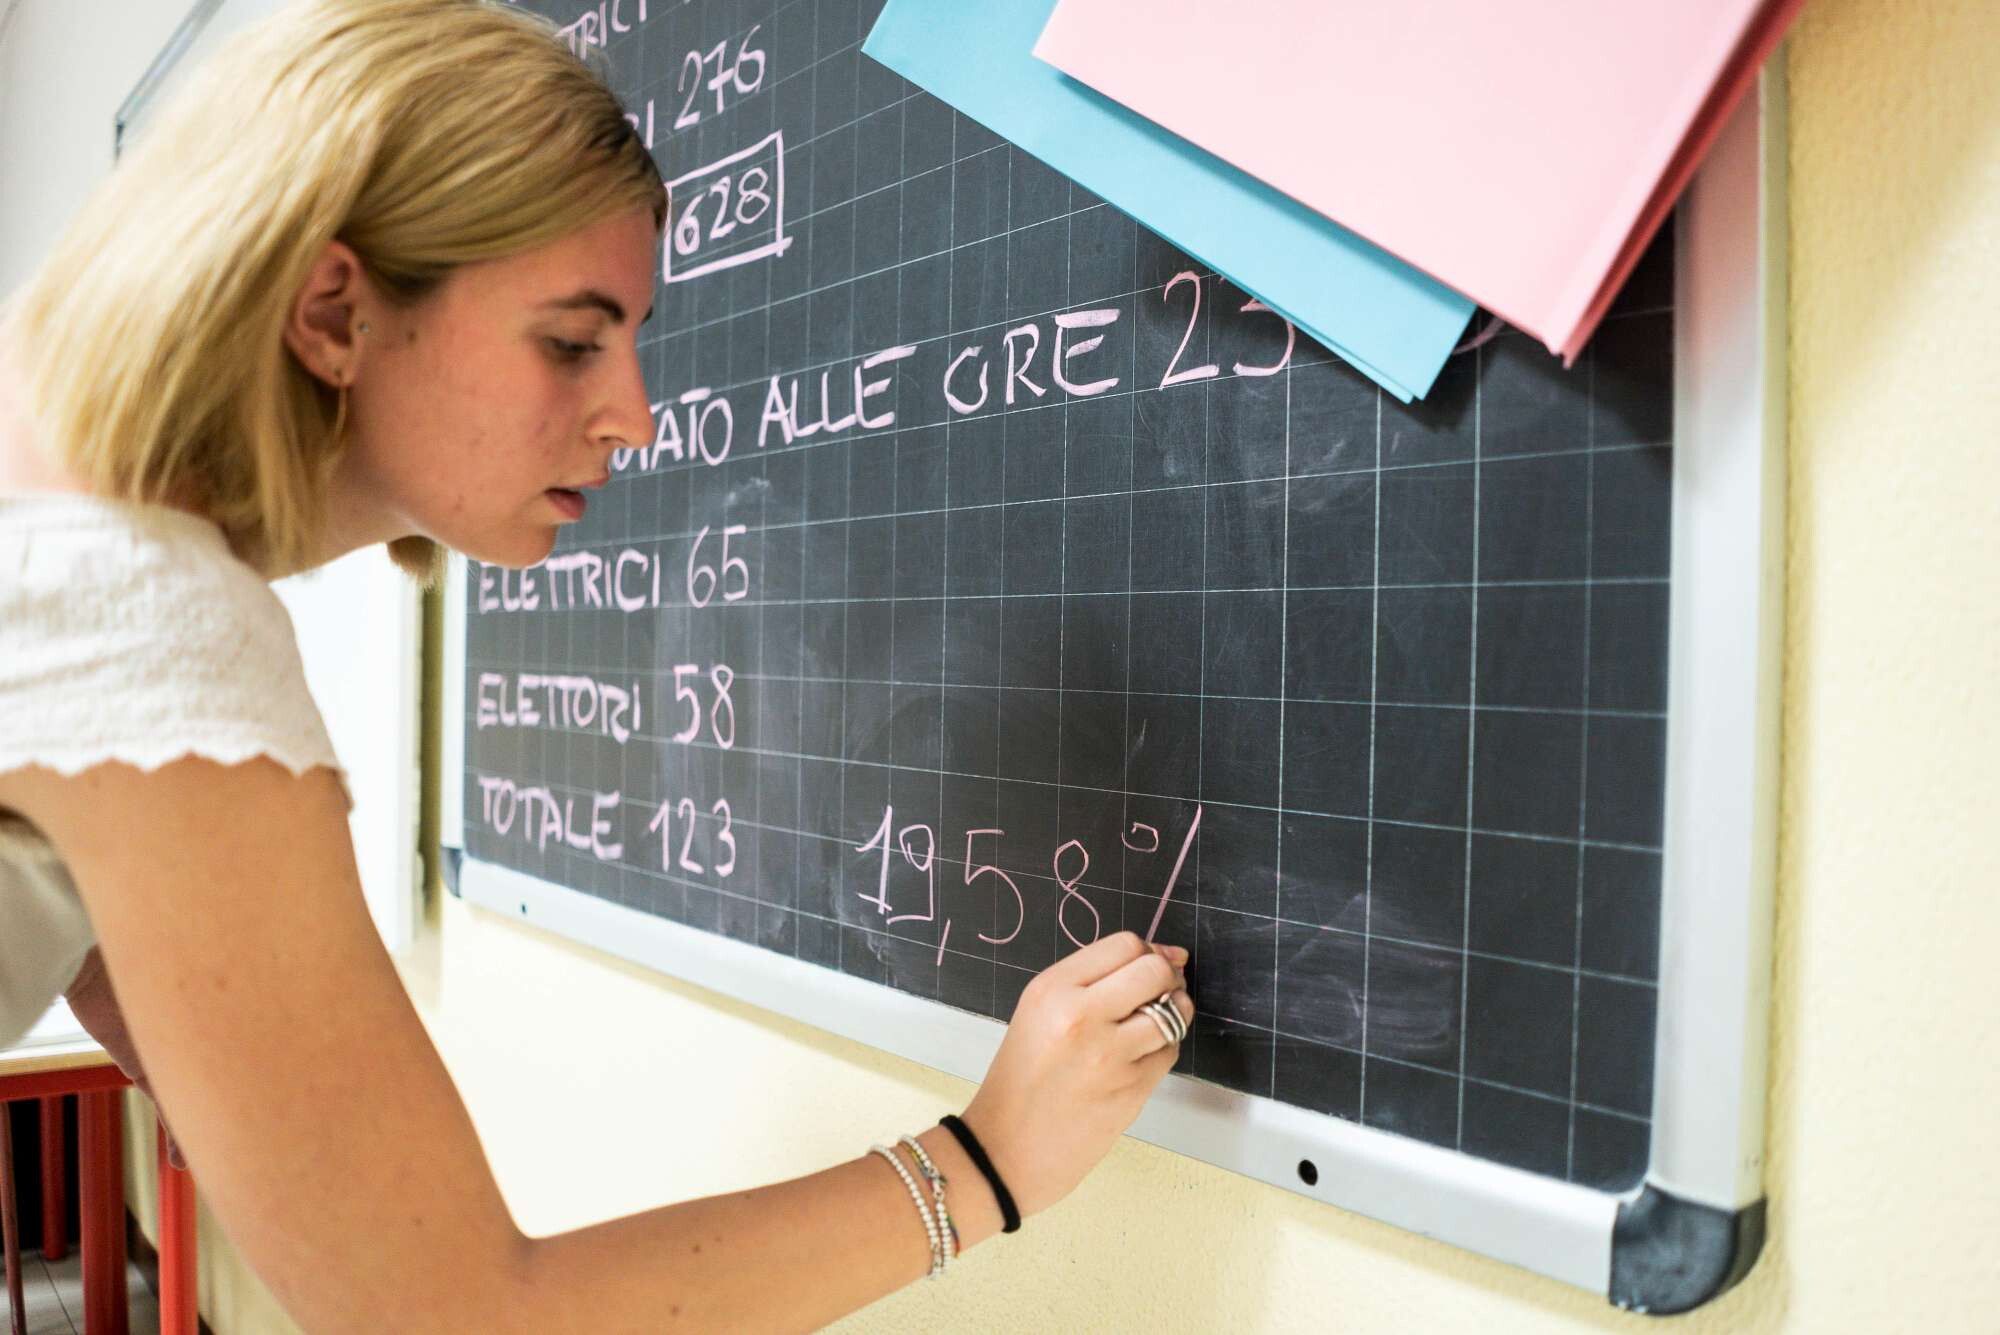 276
628
ALLE ORE 23
ELETTRICI 65
ELETTORI 58
TOTALE 123
19,58%